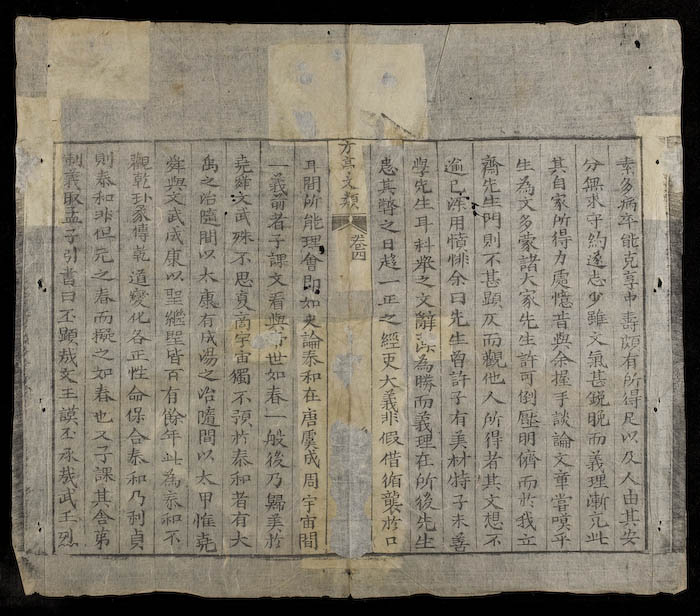 素多病卒能克享中壽頗有所得足以及人由其安
分無求守約遂志少雖文氣甚銳晚而義理漸充此
其自家所得力處憶昔與余握手談論文章嘗嘆乎
生為文多蒙諸大家先生許可倒壓明儕而於我立
齋先生門則不甚顯及而觀他人所得者其文想不
逾已深用憤悱余曰先生曾許子有美材特子未善
學先生耳科舉之文辭沠為勝而義理在所後先生
患其弊之日趨一正之經更大義非假借循襲於口
方亭文類
卷四
耳間所能理會即如史論泰和在唐虞成周宇宙間
一義前者子課文看與世如春一般後乃歸美於
堯舜文武殊不思夏商宇宙獨不預於泰和者有大
禹之治隨間以太康有成湯之治隨間以太甲惟堯
舜與文武成康以聖繼聖皆百有餘年此為泰和不
觀乾卦彖傳乾道變化各正性命保合泰和乃利貞
則泰和非但元之春而擬之如春也又子課其舍第
制義取孟子引書曰丕顯哉文王謨丕承哉武王烈